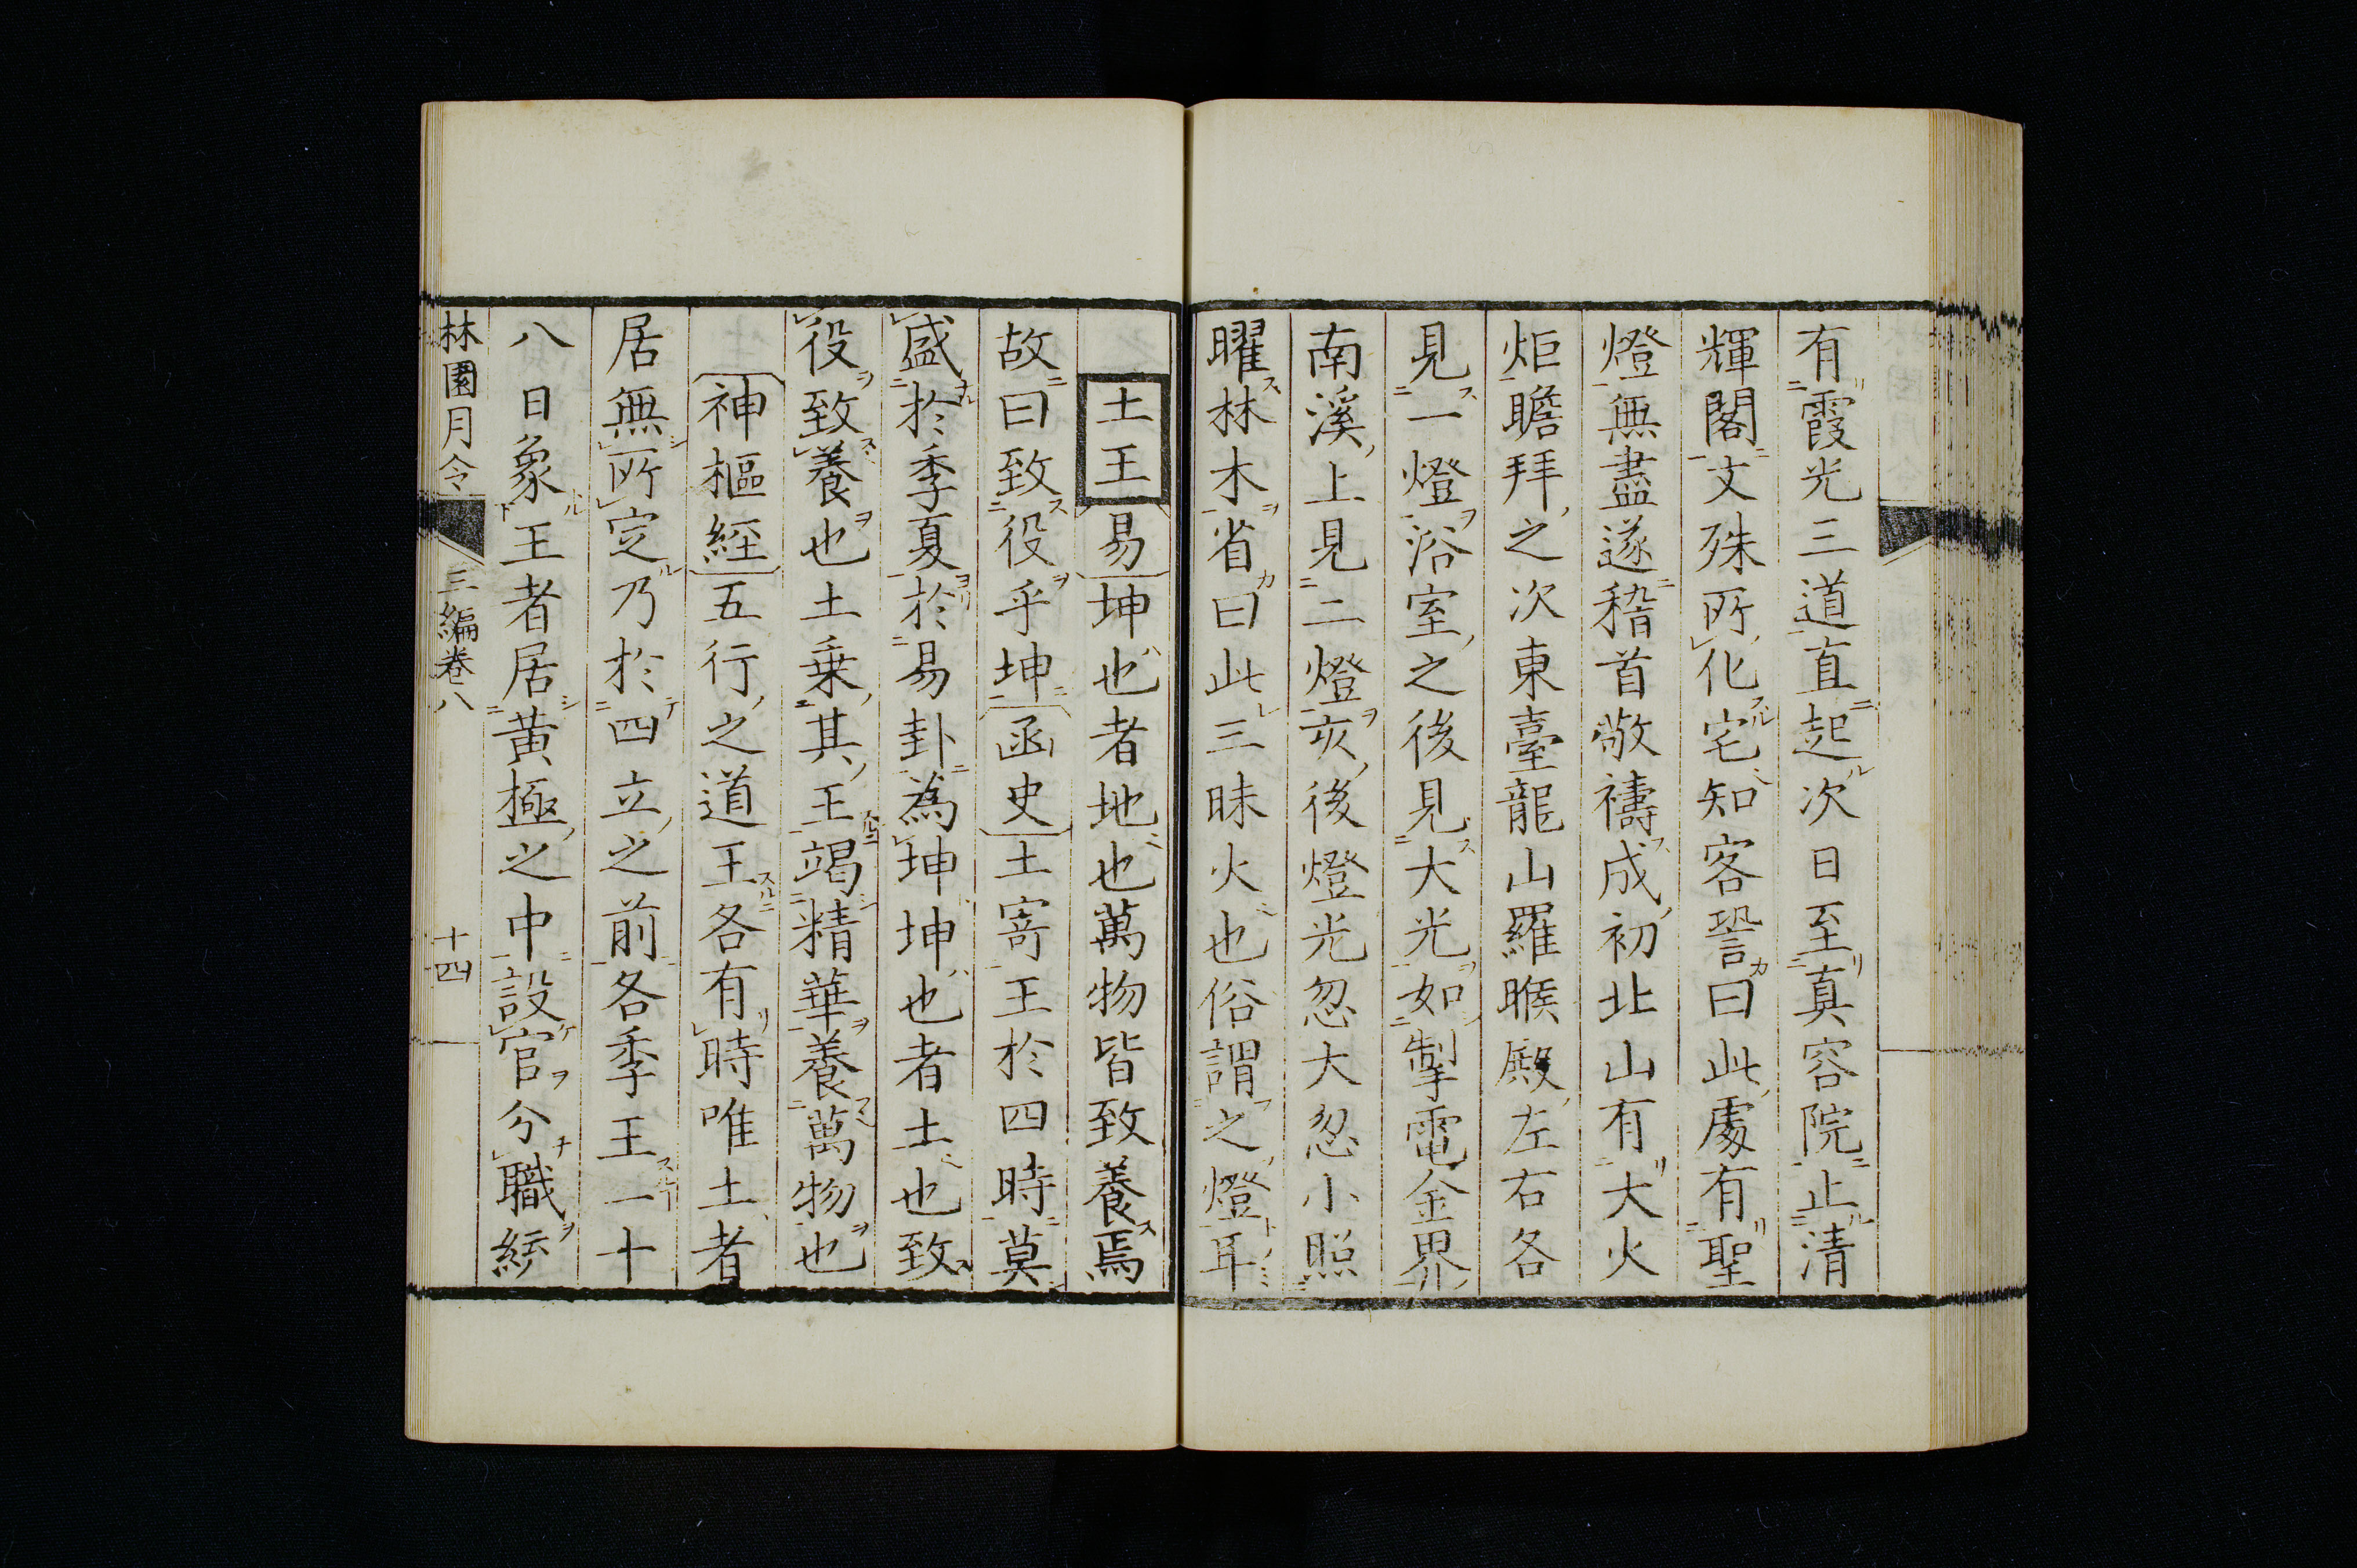 有霞光三道直起次日至真容院止清
輝閣文殊所化宅知客誾曰此處有聖
燈無盡遂稽首敬禱成初北山有大火
炬瞻拜之次東臺龍山羅睺殿左右各
見一燈浴室之後見大光如掣電金界
南溪上見二燈亥後燈光忽大忽小照
曜林木省曰此三昧火也俗謂之燈耳
土王易坤也者地也萬物皆致養焉
故曰致役乎坤函史土寄王於四時莫
盛於季夏於易卦為坤坤也者土也致
役致養也土乗其王竭精華養萬物也
神樞經五行之道王各有時唯土者
居無所定乃於四立之前各季王一十
八日象王者居黄極之中設官分職統
林園月令 三編卷八 十四